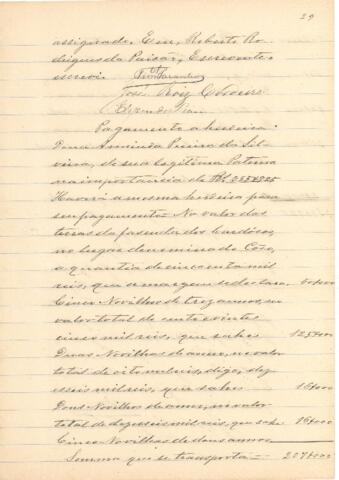 29
assignado. Eu, Roberto Ro-
drigues da Paixão, Escrevente
escrevi.
José Roiz
Pagamento a herdeira:
Dona Arminda Vieira da Sil-
veira, de sua legitima Paterna
na importancia de
Haverá a mesma herdeira para
seu pagamento= No valor das
terras da fasenda dos Cardósos,
no lugar denominado Cóxo,
a quantia de cincoenta mil
reis, que a margem se declara.
Cinco Novilhos de trez annos, no
valor total de cento e vinte
cinco mil reis, que sahe 125$000
Duas Novilhas de anno, no valor
total de oito mil reis, digo, dez
esseis mil reis, que sahe 16$000
Dous Novilhos de anno, no valor
total de dezesseis mil reis, que sahe 16$000
Cinco Novilhas de dous annos
Somma que se transporta= 207$000